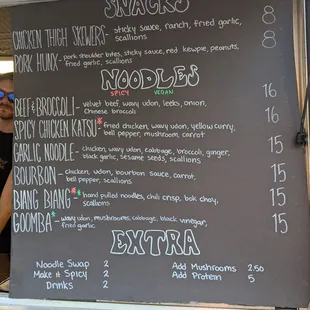 SNACKS
CHICKEN THIGH SKEWERS- sticky sauce, ranch, fried garlic, 8
scallions
PORK HUNX- pork shoulder bites, sticky sauce, red kewpie, peanuts, 8
fried garlic, scallions
NOODLES
SPICY VEGAN
BEEF & BROCCOLI- velvet beef, wavy udon, leeks, onion, 16
Chinese broccoli
SPICY CHICKEN KATSU*- fried chicken, wavy udon, yellow curry, 16
bell pepper, mushroom, carrot
GARLIC NOODLE- chicken, wavy udon, cabbage, broccoli, ginger, 15
black garlic, sesame seeds, scallions
BOURBON- chicken, udon, bourbon sauce, carrot, 15
bell pepper, scallions
BIANG BIANG** hand pulled noodles, chili crisp, bok choy, 15
scallions
GOOMBA*- wavy udon, mushrooms, cabbage, black vinegar, 15
fried garlic
EXTRA
Noodle Swap 2 Add Mushrooms 2.50
Make it Spicy 2 Add Protein 5
Drinks 2